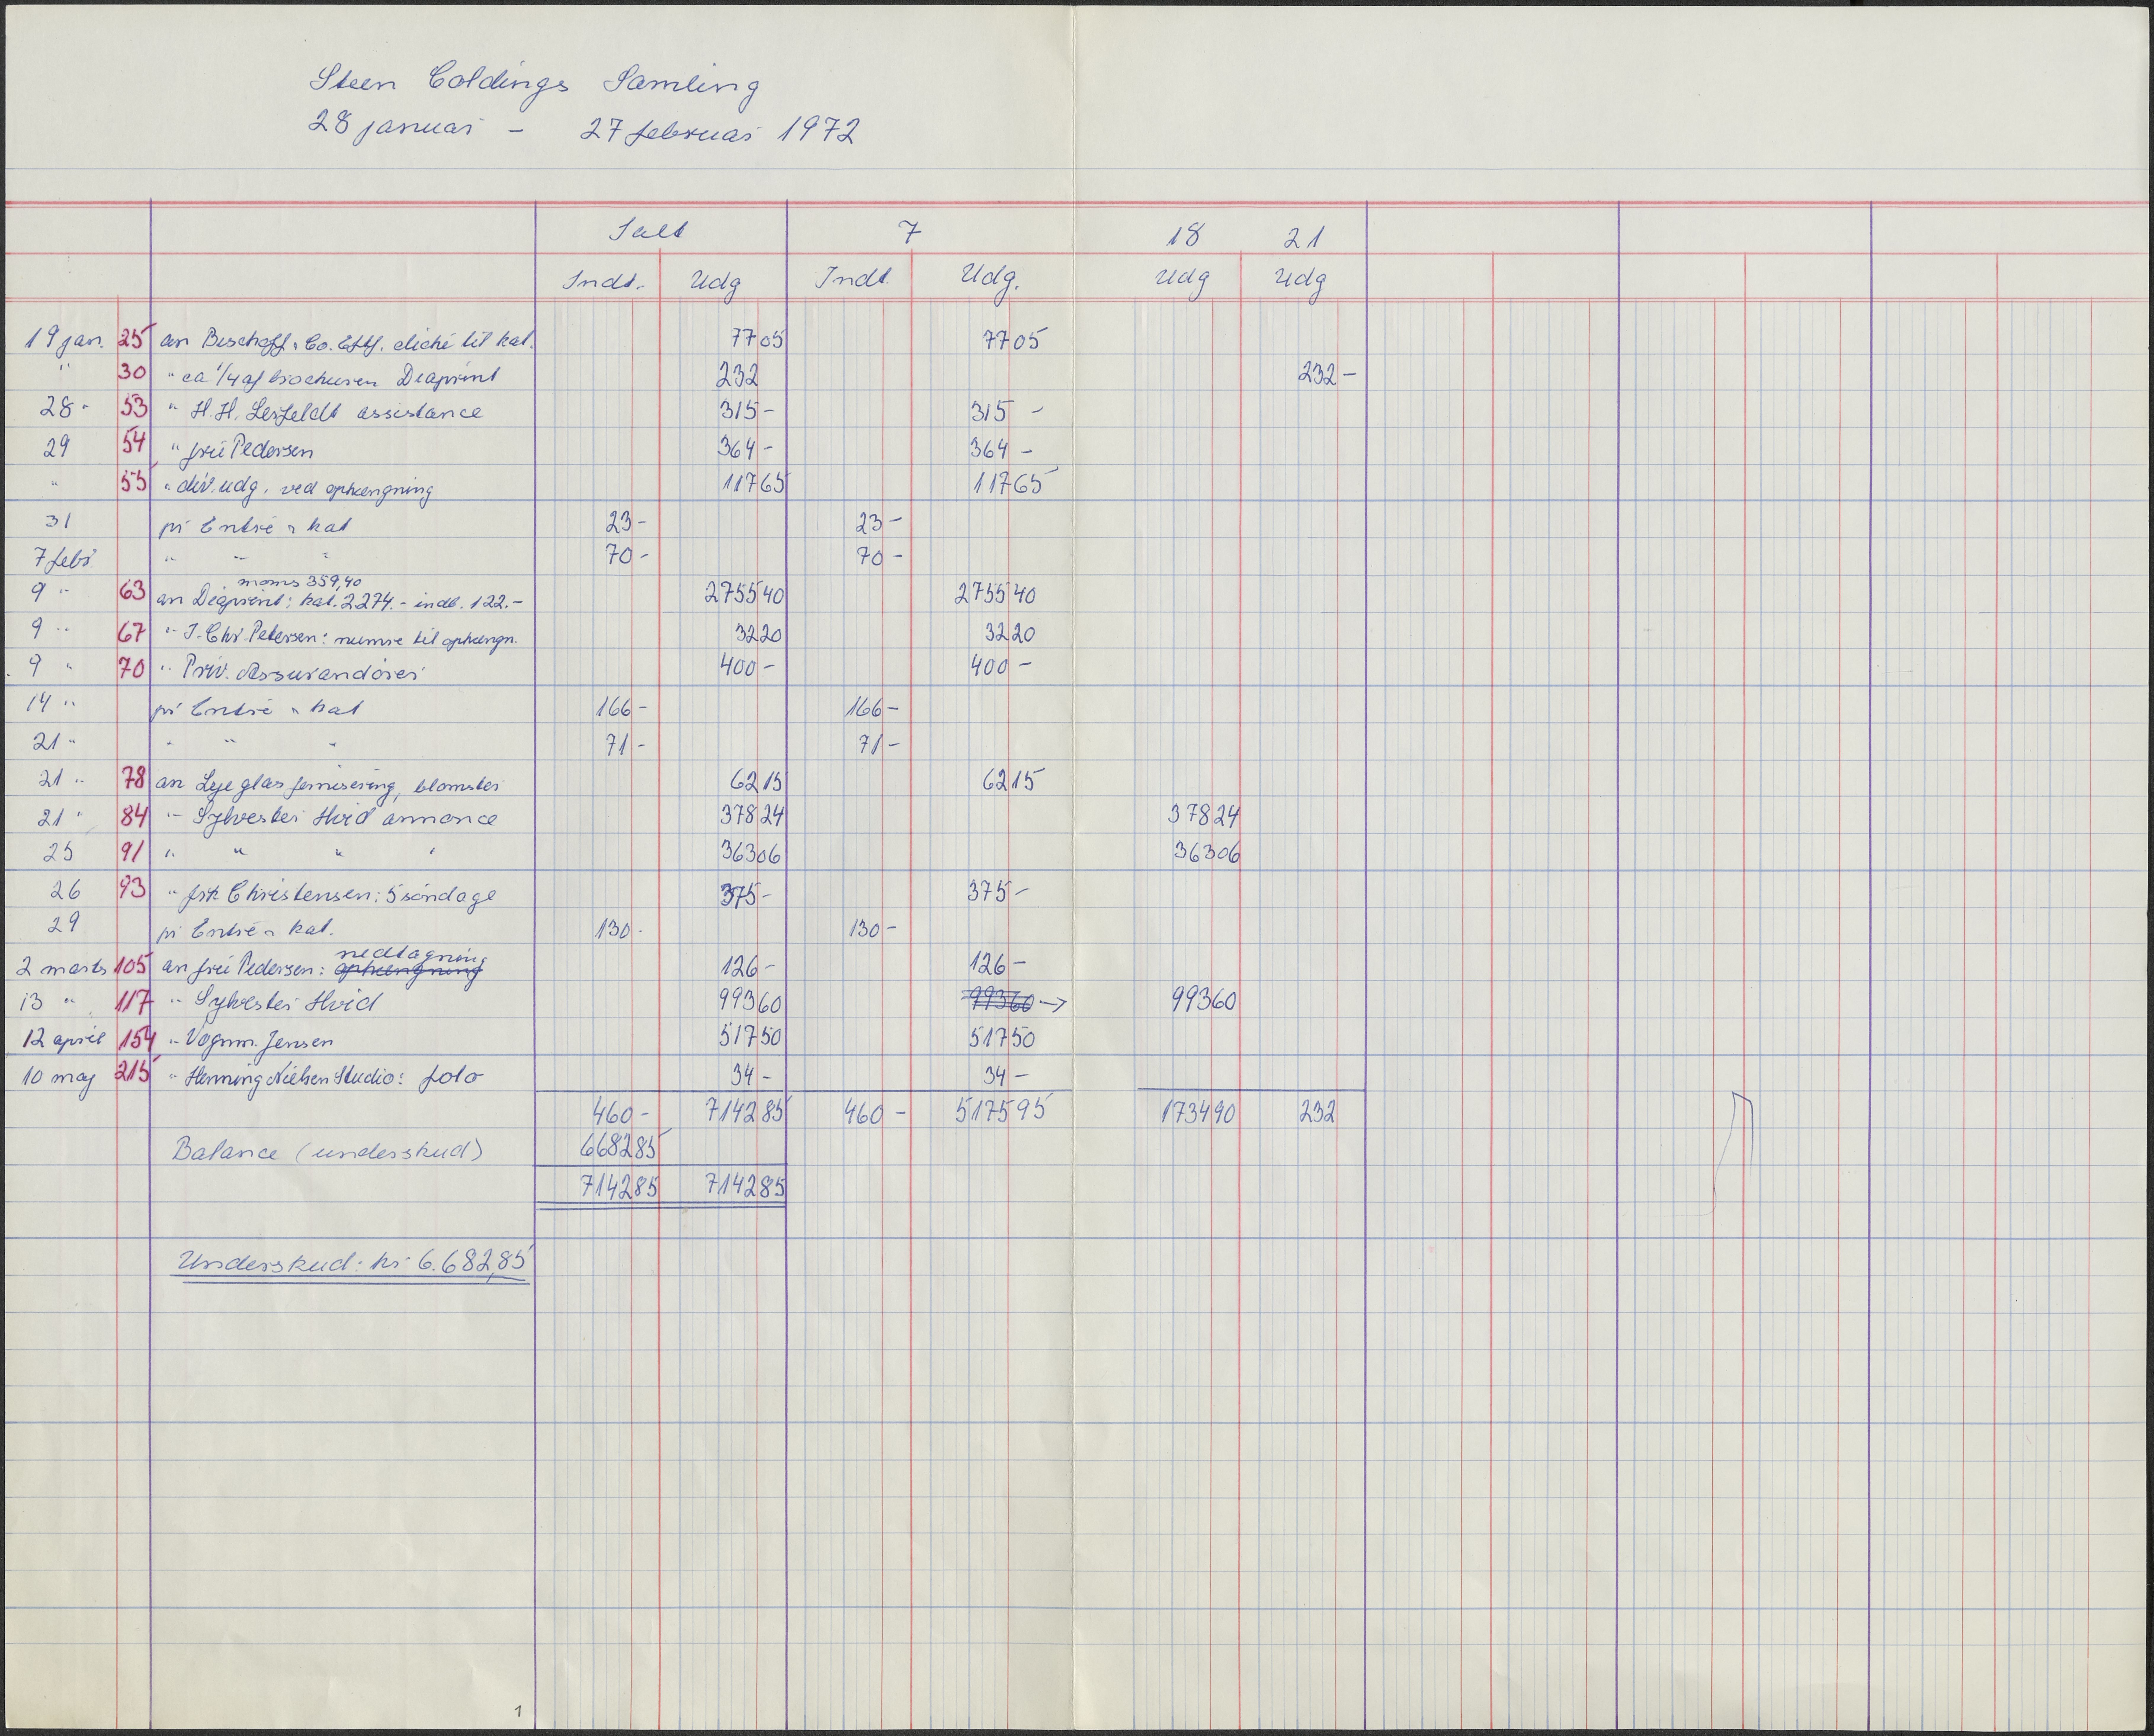 Steen Coldings Samling
28 januar - 27 februar 1972
Ialt 7 18 21
Indt. Udg Indt. Udg. Udg Udg
19 jan. 25 an Bischoff & Co. Eftf. cliché til kat. 77 05 77 05
" 30 " ca 1/4 af brochuren Diaprint 232 232 -
28 " 53 " H.H. Lerfeldt assistance 315 - 315 -
29 54 " fru Pedersen 364 - 364 -
" 55 " div. udg. ved ophængning 117 65 117 65
31 pr Entré & kat 23 - 23 -
7 febr " " " 70 - 70 -
moms 359,40
9 " 63 an Diaprint: kat. 2274.- indb. 122.- 2755 40 2755 40
9 " 67 " J. Chr. Petersen: numre til ophængn. 32 20 32 20
9 " 70 " Priv. Assurandører 400 - 400 -
14 " pr Entré & kat 166 - 166 -
21 " " " " 71 - 71 -
21 " 78 an Leje glas fernisering, blomster 62 15 62 15
21 " 84 " Sylvester Hvid annonce 378 24 378 24
25 91 " " " " 363 06 363 06
26 93 " frk Christensen: 5 søndage 375 - 375 -
29 pr Entré & kat. 130 - 130 -
nedtagning
2 marts 105 an fru Pedersen: ophængning 126 - 126 -
13 " 117 " Sylvester Hvid 993 60 993 60 → 993 60
12 april 154 " Vognm. Jensen 517 50 517 50
10 maj 215 " Henning Nielsen Studio: foto 34 - 34 -
460 - 7142 85 460 - 5175 95 1734 90 232
Balance (underskud) 6682 85
7142 85 7142 85
Underskud: kr 6.682,85
1